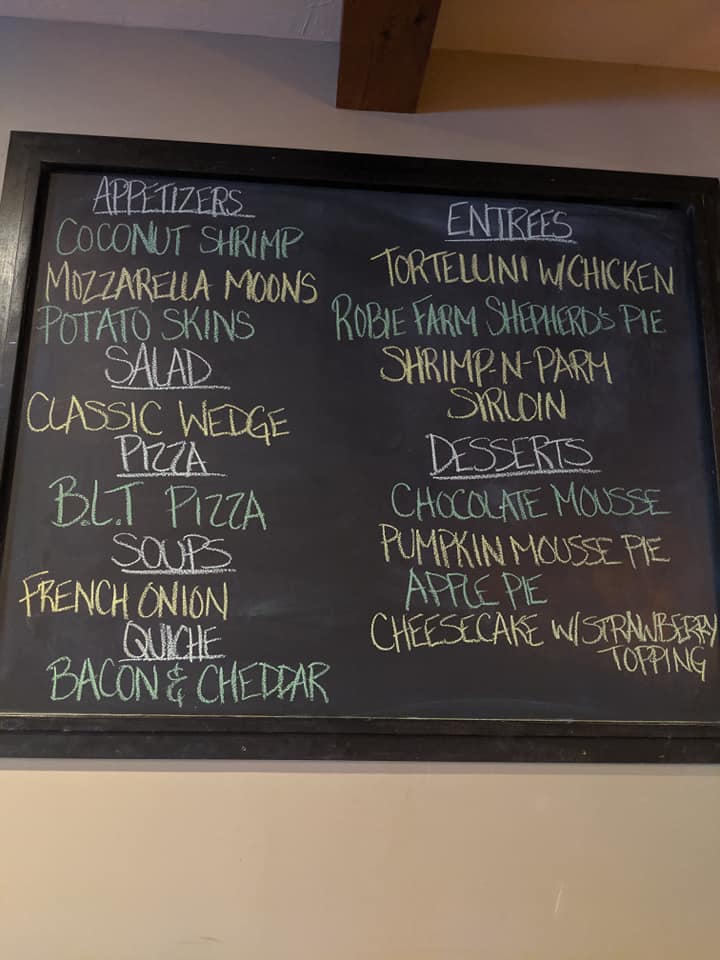 APPETIZERS
COCONUT SHRIMP
MOZZARELLA MOONS
POTATO SKINS
SALAD
CLASSIC WEDGE
PIZZA
B.L.T PIZZA
SOUPS
FRENCH ONION
QUICHE
BACON & CHEDDAR
ENTREES
TORTELLINI W/CHICKEN
ROBIE FARM SHEPHERD'S PIE
SHRIMP-N-PARM
SYRLOIN
DESSERTS
CHOCOLATE MOUSSE
PUMPKIN MOUSSE PIE
APPLE PIE
CHEESECAKE W/STRAWBERRY
TOPPING